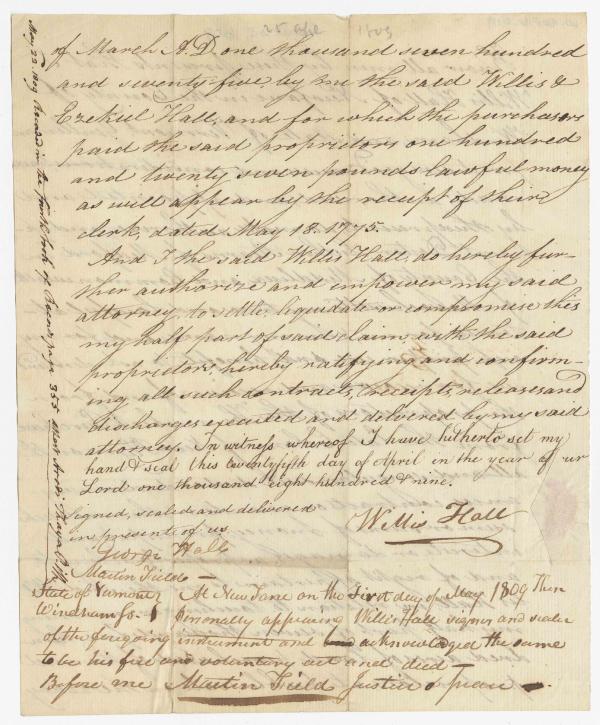 25 apl 1809
of March A.D. one thousand seven hundred
and seventy-five, by me the said Willis &
Ezekiel Hall, and for which the purchasors
paid the said proprietors one hundred
and twenty seven pounds lawful money
as will appear by the receipt of their
clerk, dated May 18. 1775.
And I the said Willis Hall, do hereby fur-
ther authorize and empower my said
attorney, to settle, liquidate or compromise this
my half part of said claim, with the said
proprietors, hereby ratifying and confirm-
ing all such contracts, receipts, releases and
discharges executed and delivered by my said
attorney. In witness whereof I have hitherto set my
hand & seal this twentyfifth day of April in the year of ur
Lord one thousand eight hundred & nine.
Signed, sealed and delivered
in presents of us
Willis Hall
George Hall
Martin Field —
State of Vermont
Windham Ss.
At New Fane on the First day of May 1809 then
personally appearing Willis Hall signer and sealer
of the foregoing instrument and acknowledged the same
to be his free and voluntary act and died —
Before me Martin Field Justice o peace —
May 22. 1809 Recorded in the fourth book of Records page 355 Attest